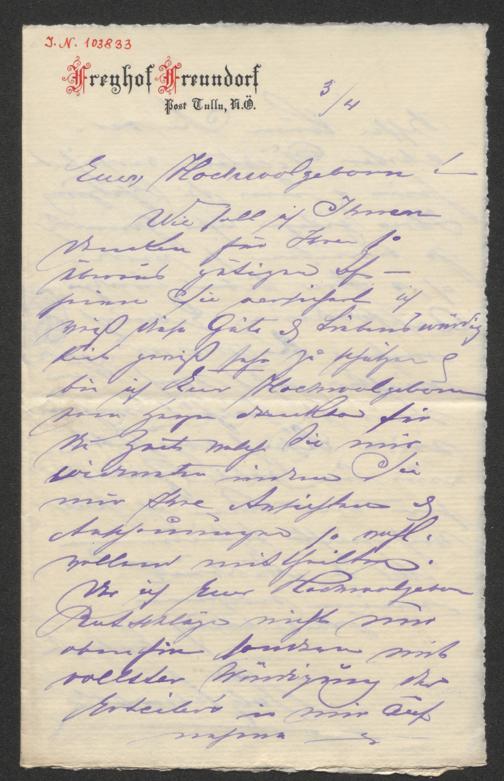 J. N. 103833
Freyhof Freundorf
Post Tulln, N.Ö.
3/4
Euer Hochwolgeborn!
Wie soll ich Ihnen
danken für Ihre so
überaus gütigen
Sie versichert ich
weiß diese Güte & Liebenswürdig
keit gewiß sehr zu schätzen &
bin ich Euer Hochwolgeborn
vom Herzen dankbar für
die Zeit welche Sie mir
widmeten indem Sie
mir Ihre Ansichten &
Anschauungen so
mittheilten.
Da ich Euer Hochwolgeborn
Ratschläge nicht nur
obenhin sondern mit
vollster Würdigung des
Erteilers in mir auf
nahm